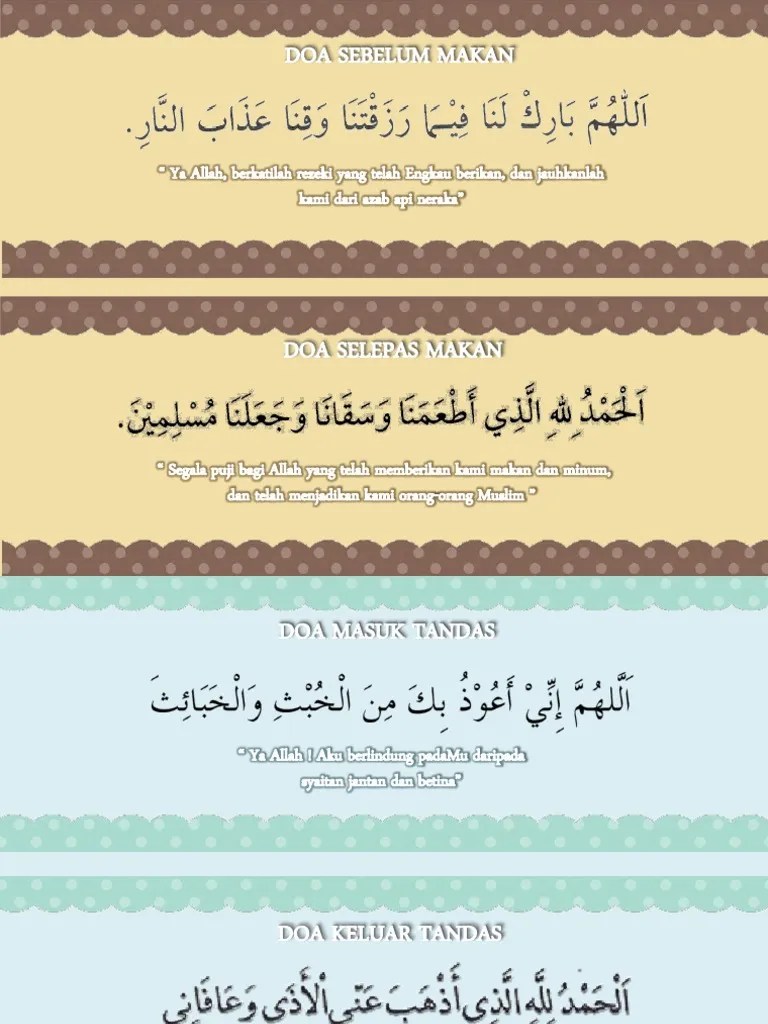 DOA SEBELUM MAKAN
اَللّٰهُمَّ بَارِكْ لَنَا فِيْمَا رَزَقْتَنَا وَقِنَا عَذَابَ النَّارِ.
" Ya Allah, berkatilah rezeki yang telah Engkau berikan, dan jauhkanlah
kami dari azab api neraka"
DOA SELEPAS MAKAN
اَلْحَمْدُ لِلّٰهِ الَّذِي أَطْعَمَنَا وَسَقَانَا وَجَعَلَنَا مُسْلِمِيْنَ.
" Segala puji bagi Allah yang telah memberikan kami makan dan minum,
dan telah menjadikan kami orang-orang Muslim "
DOA MASUK TANDAS
اَللَّهُمَّ إِنِّيْ أَعُوْذُ بِكَ مِنَ الْخُبْثِ وَالْخَبَائِثَ
" Ya Allah ! Aku berlindung padaMu daripada
syaitan jantan dan betina"
DOA KELUAR TANDAS
اَلْحَمْدُ لِلَّهِ الَّذِي أَذْهَبَ عَنِّي الْأَذَى وَعَافَانِي